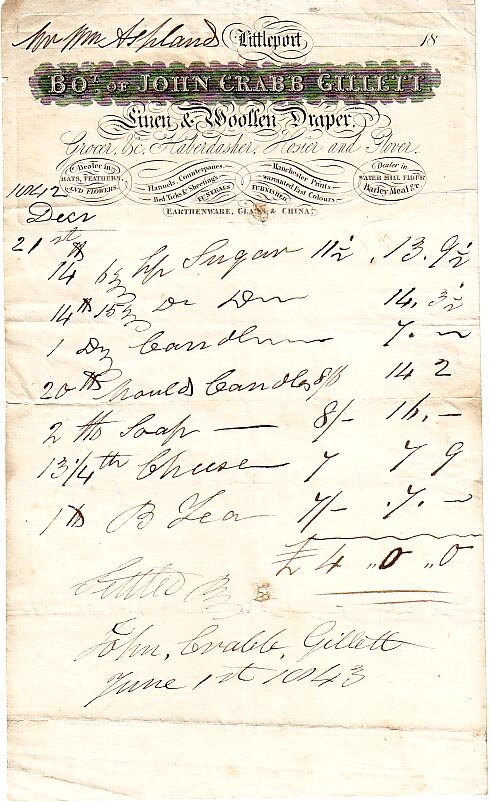 Mr Wm Aspland Littleport 18
BOT. OF JOHN CRABB GILLETT
Linen & Woollen Draper.
Grocer, &c, Haberdasher, Hosier and Glover.
Dealer in HATS, FEATHERS, AND FLOWERS.
Flannels, Counterpanes, Bed Ticks & Sheetings
FUNERALS FURNISHED
Manchester Prints warranted Fast Colours
Dealer in WATER MILL FLOUR Barley Meal &c
EARTHENWARE, GLASS, & CHINA.
1842
Decr
21st
14 lb 6 oz Lp Sugar 11½ 13. 9½
14 lb 15 oz Do Do 14. 3½
1 Dz Candles 7. -
20 lb Mould Candles 8/6 14 2
2 lb Soap — 8/- 16. -
13 1/4 lb Cheese 7 7 9
1 lb B Tea 7/- 7. -
£4 " 0 " 0
Settled By
John, Crabb, Gillett
June 1st 1843